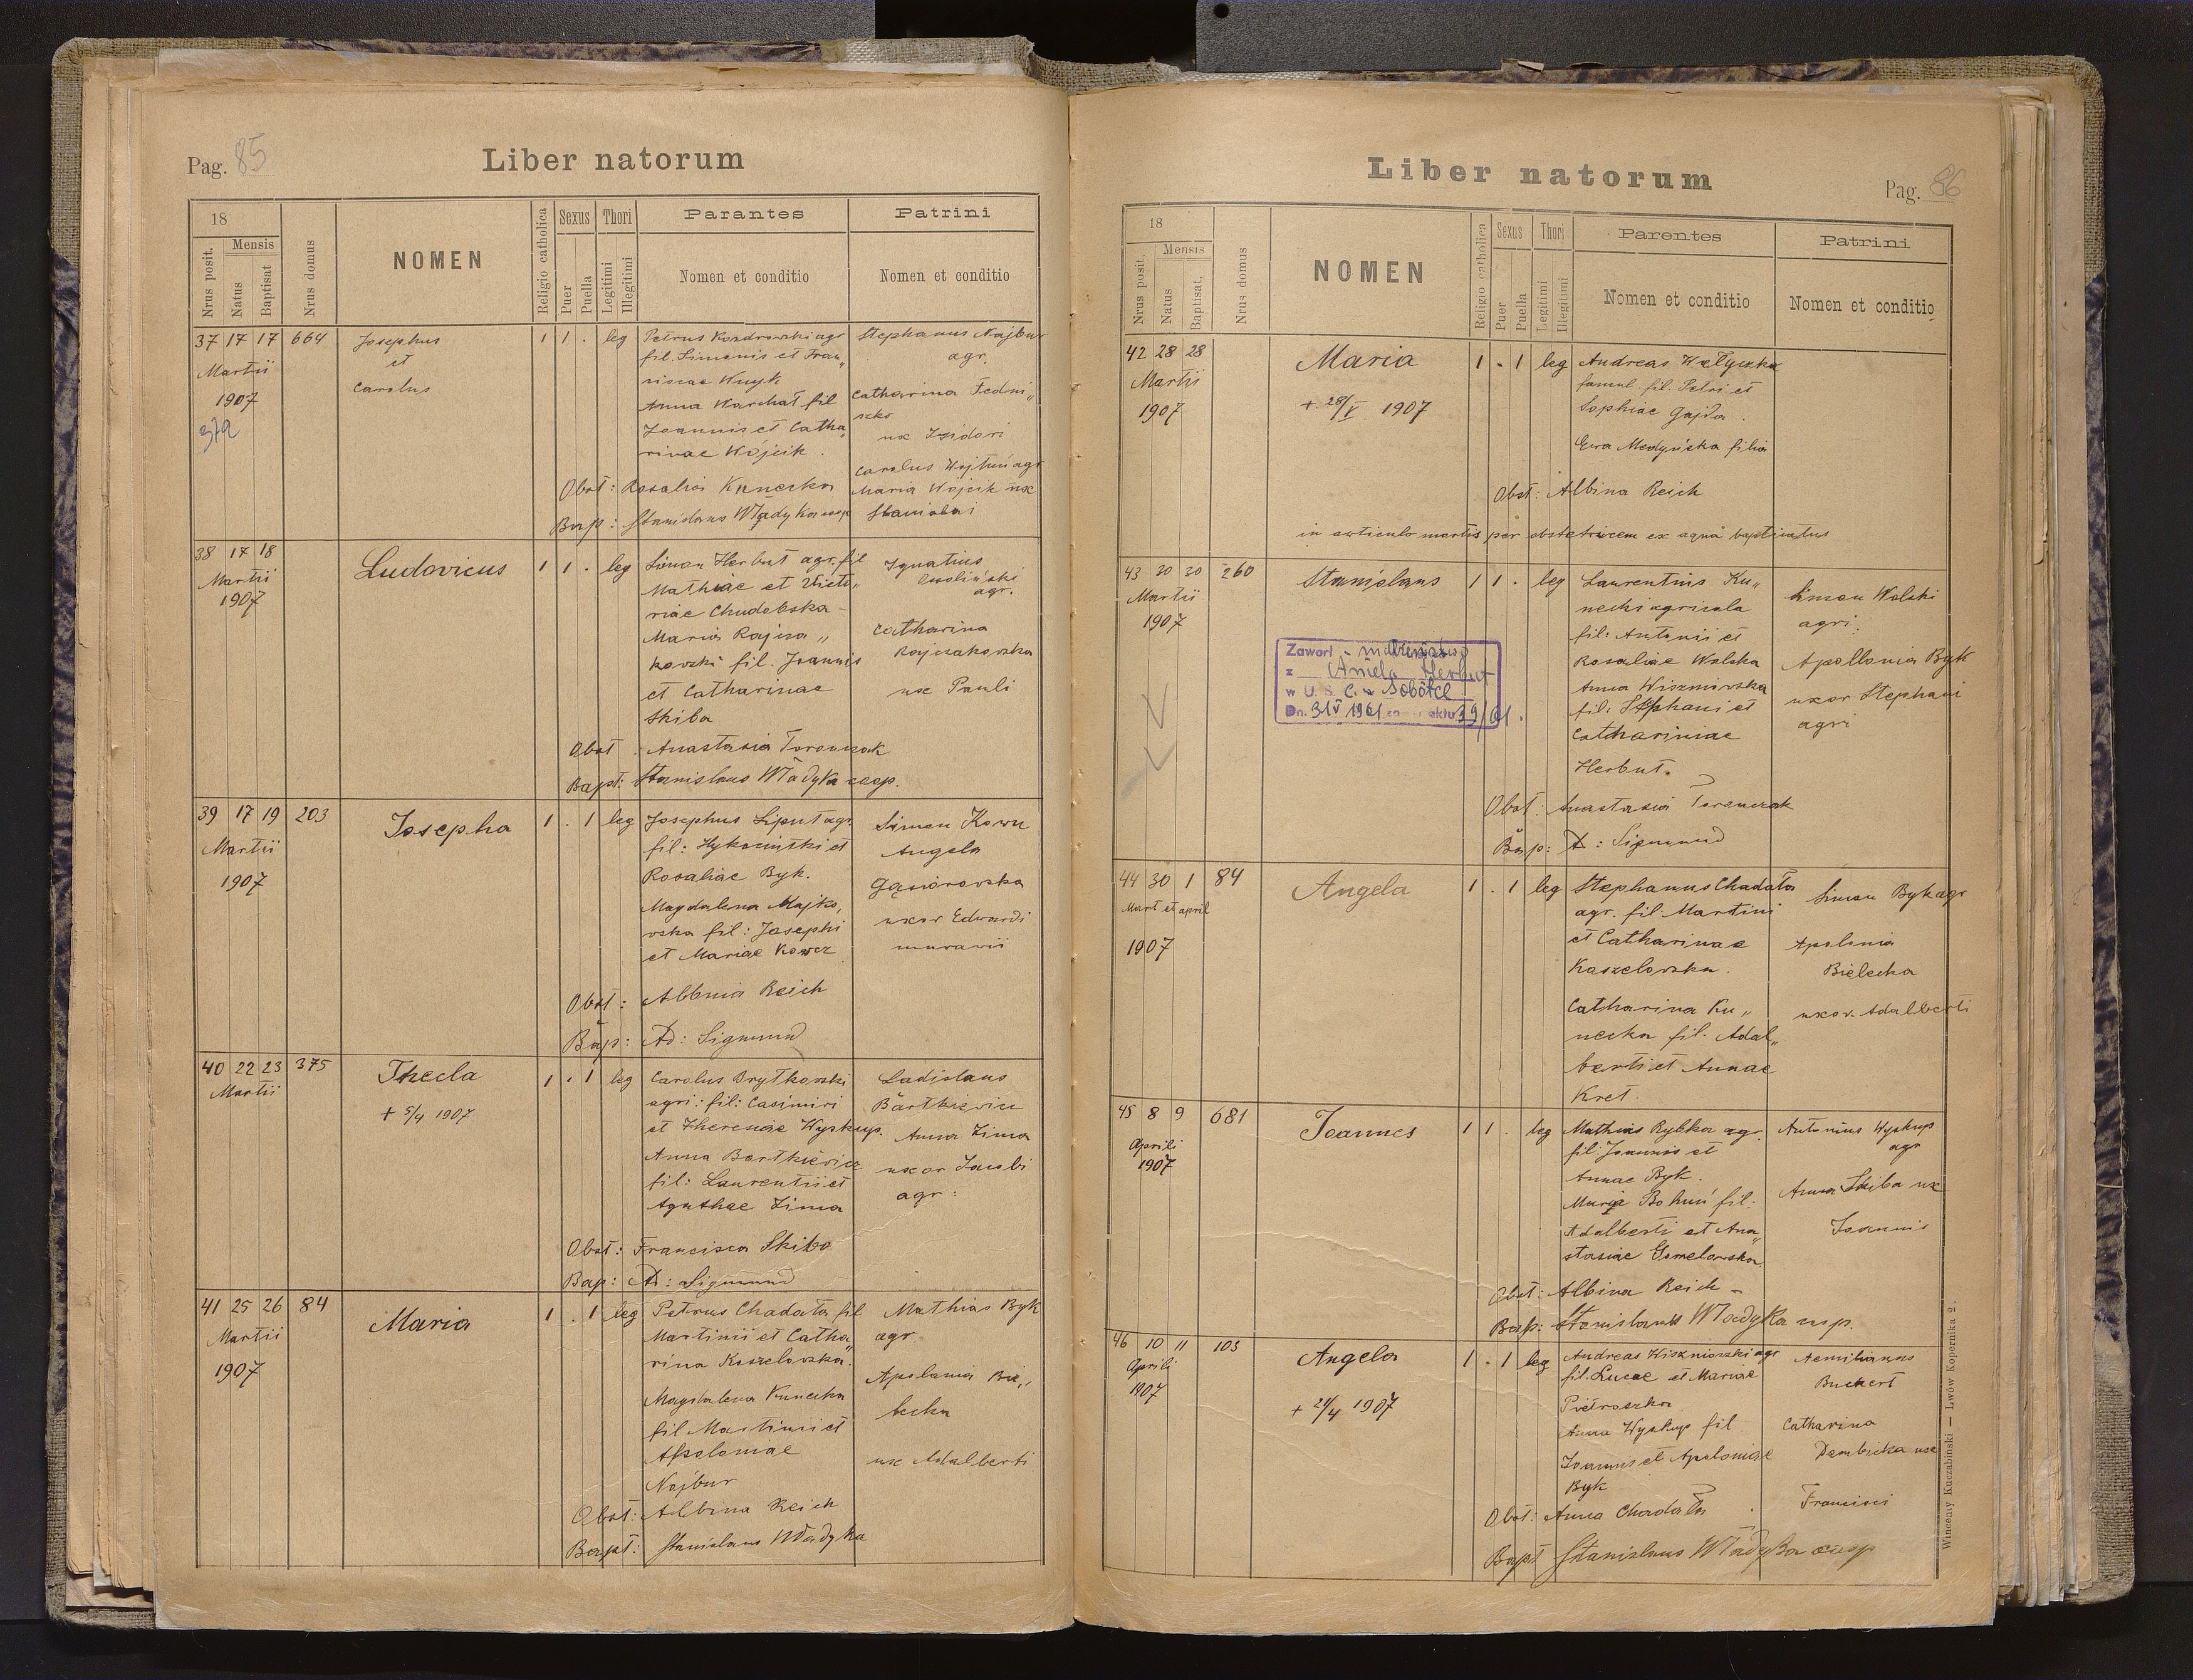 Pag. 85
Liber natorum
18
Nrus posit.
Mensis
Natus
Baptisat
Nrus domus
NOMEN
Religio catholica
Sexus
Puer
Puella
Thori
Legitimi
Illegitimi
Parantes
Nomen et conditio
Patrini
Nomen et conditio
37 17 17 664
Martii
1907
Josephus
et
Carolus
1 1 . leg
Petrus Kozdrowski agr
fil. Simonis et Fran„
ciscae Knyk
Anna Warchał fil
Joannis et Catha„
rinae Wójcik.
Stephanus Najbur
agr.
Catharina Fedni„
szko
ux Isidori
Carolus Wojtuń agr
Maria Wojcik ux
Stanislai
Obst: Rosalia Kunecka
Bap: Stanislaus Władyka coop
38 17 18
Martii
1907
Ludovicus
1 1 . leg
Simon Herbut agr. fil
Mathiae et Victo„
riae Chudobska -
Maria Rajcza„
kowski fil. Joannis
et Catharinae
Skiba
Ignatius
agr.
Catharina
Rajczakowska
ux Pauli
Obst. Anastasia Toronczak
Bapt: Stanislaus Władyka coop.
39 17 19 203
Martii
1907
Josepha
1 . 1 leg
Josephus Liput agr.
fil:
Rosaliae Byk.
Magdalena Majko„
wska fil: Josephi
et Mariae Kowcz
Simon Kowcz
Angela
Gąsiorowska
uxor Edwardi
murarii
Obst: Albina Reich
Bap: A: Sigmund
40 22 23 375
Martii
Thecla
+ 5/4 1907
1 . 1 leg
Carolus Brytkowski
agri: fil: Casimiri
et Theresiae Wyskup.
Anna Bartkiewicz
fil: Laurentii et
Agathae Zima
Ladislaus
Bartkiewicz
Anna Zima
uxor Jacobi
agr:
Obst: Francisca Skiba
Bap: A: Sigmund
41 25 26 84
Martii
1907
Maria
1 . 1 leg
Petrus Chadała fil
Martinii et Catha„
rina Koszelowska.
Magdalena Kunecka
fil Martini et
Apoloniae
Najbur
Mathias Byk
agr.
Apolania Bie„
lecka
ux Adalberti
Obst: Albina Reich
Bapt: Stanislaus Władyka
Liber natorum
Pag. 86
18
Nrus posit.
Mensis
Natus
Baptisat,
Nrus domus
NOMEN
Religio catholica
Sexus
Puer
Puella
Thori
Legitimi
Illegitimi
Parentes
Nomen et conditio
Patrini
Nomen et conditio
42 28 28
Martii
1907
Maria
+ 28/V 1907
1 . 1 leg
Andreas Wełyczka
famul. fil. Petri et
Sophiae Gajda.
Ewa Medyńska filia
Obst: Albina Reich
in articulo mortis per obstetricem ex aqua baptisatus
43 30 30 260
Martii
1907
Stanislaus
1 1 . leg
Laurentius Ku„
necki agricola
fil: Antonii et
Rosaliae Wolska
Anna Wiszniowska
fil: Stephani et
Cathariniae
Herbut.
Simon Wolski
agri:
Apollonia Byk
uxor Stephani
agri
Zawarł małżeństwo
z Aniela Herbut
w U. S. C. w Sobótce
Dn. 31 V 1961 aktu 39/61.
Obst: Anastasia Toronczak
Bap: A: Sigmund
44 30 1 84
Mart et april
1907
Angela
1 . 1 leg
Stephanus Chadała
agr. fil Martini
et Catharinae
Kaszelowska.
Catharina Ku„
necka fil. Adal„
berti et Annae
Kret.
Simon Byk agr
Apolonia
Bielecka
uxor. Adalberti
45 8 9 681
Aprili
1907
Joannes
1 1 . leg
Mathias Rybka agr.
fil. Joannis et
Annae Byk.
Maria Bohuń fil:
Adalberti et Ana„
stasiae Gomelowska
Antonius Wyskup
agr
Anna Skiba ux
Joannis
Obst: Albina Reich -
Bap: Stanislaus Władyka mp.
46 10 11 103
Aprili
1907
Angela
+ 24/4 1907
1 . 1 leg
Andreas Wiszniowski agr
fil. Lucae et Mariae
Pietroszka
Anna Wyskup fil
Joannis et Apoloniae
Byk
Aemilianus
Buckert
Catharina
Dembicka uxo
Francisci
Obst: Anna Chadała
Bapt Stanislaus Władyka coop
Winconty Kuczabiński — Lwów Kopernika 2.